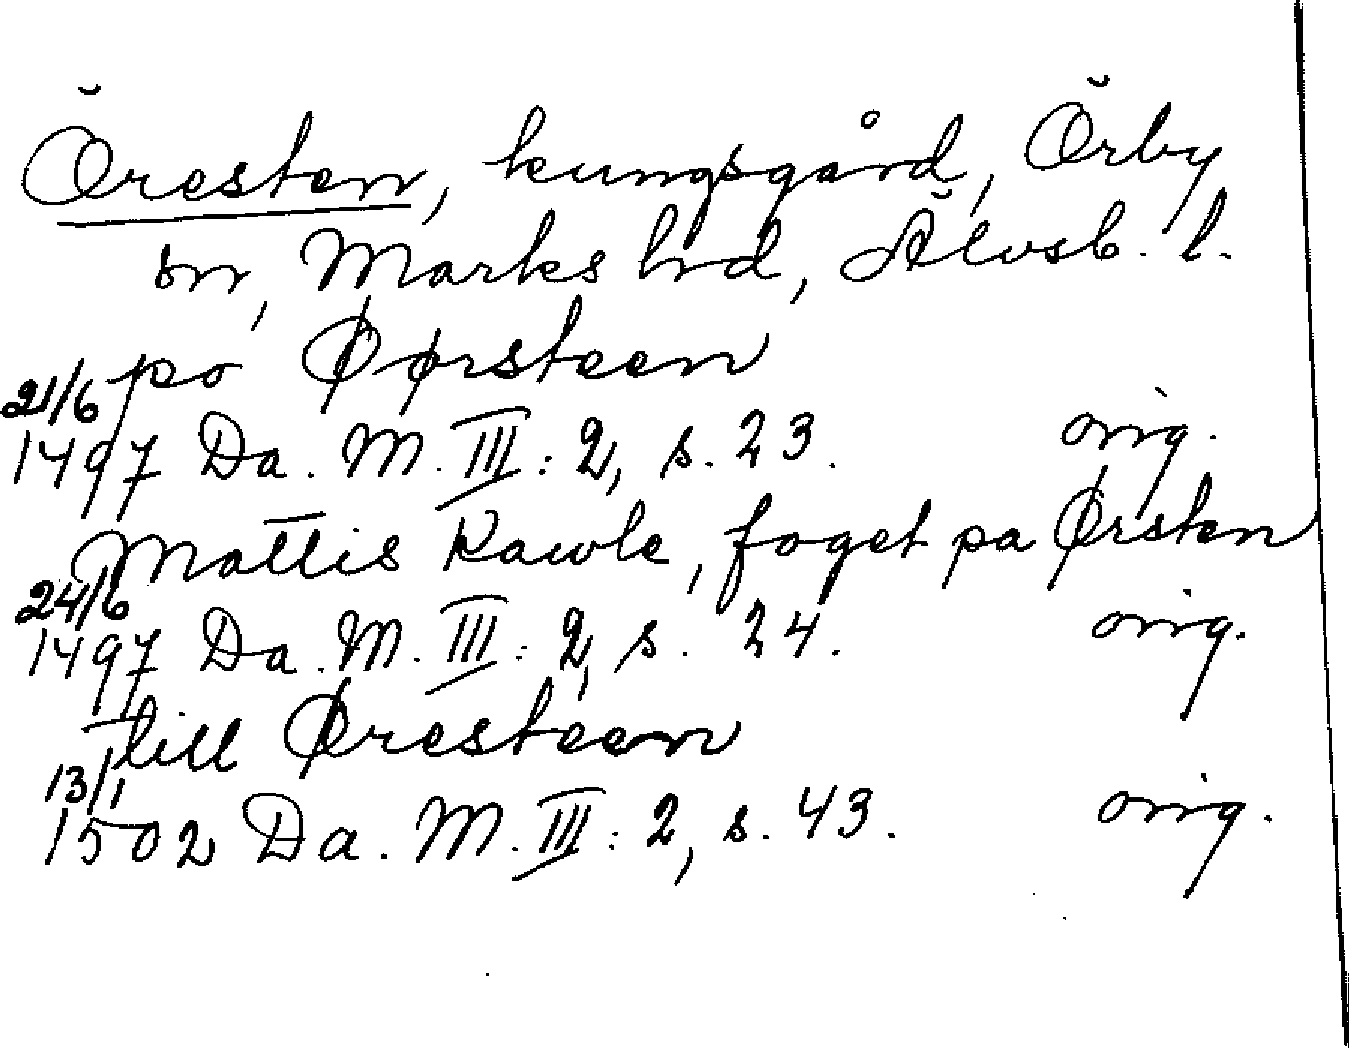 Öresten, kungsgård, Örby
sn, Marks hrd, Älvsb. l.
po Øørsteen
21/6
1497 Da. M. III: 2, s. 23. orig.
Mattis Kawle, foget pa Ørsten
24/6
1497 Da. M. III: 2, s. 24. orig.
till Øresteen
13/1
1502 Da. M. III: 2, s. 43. orig.